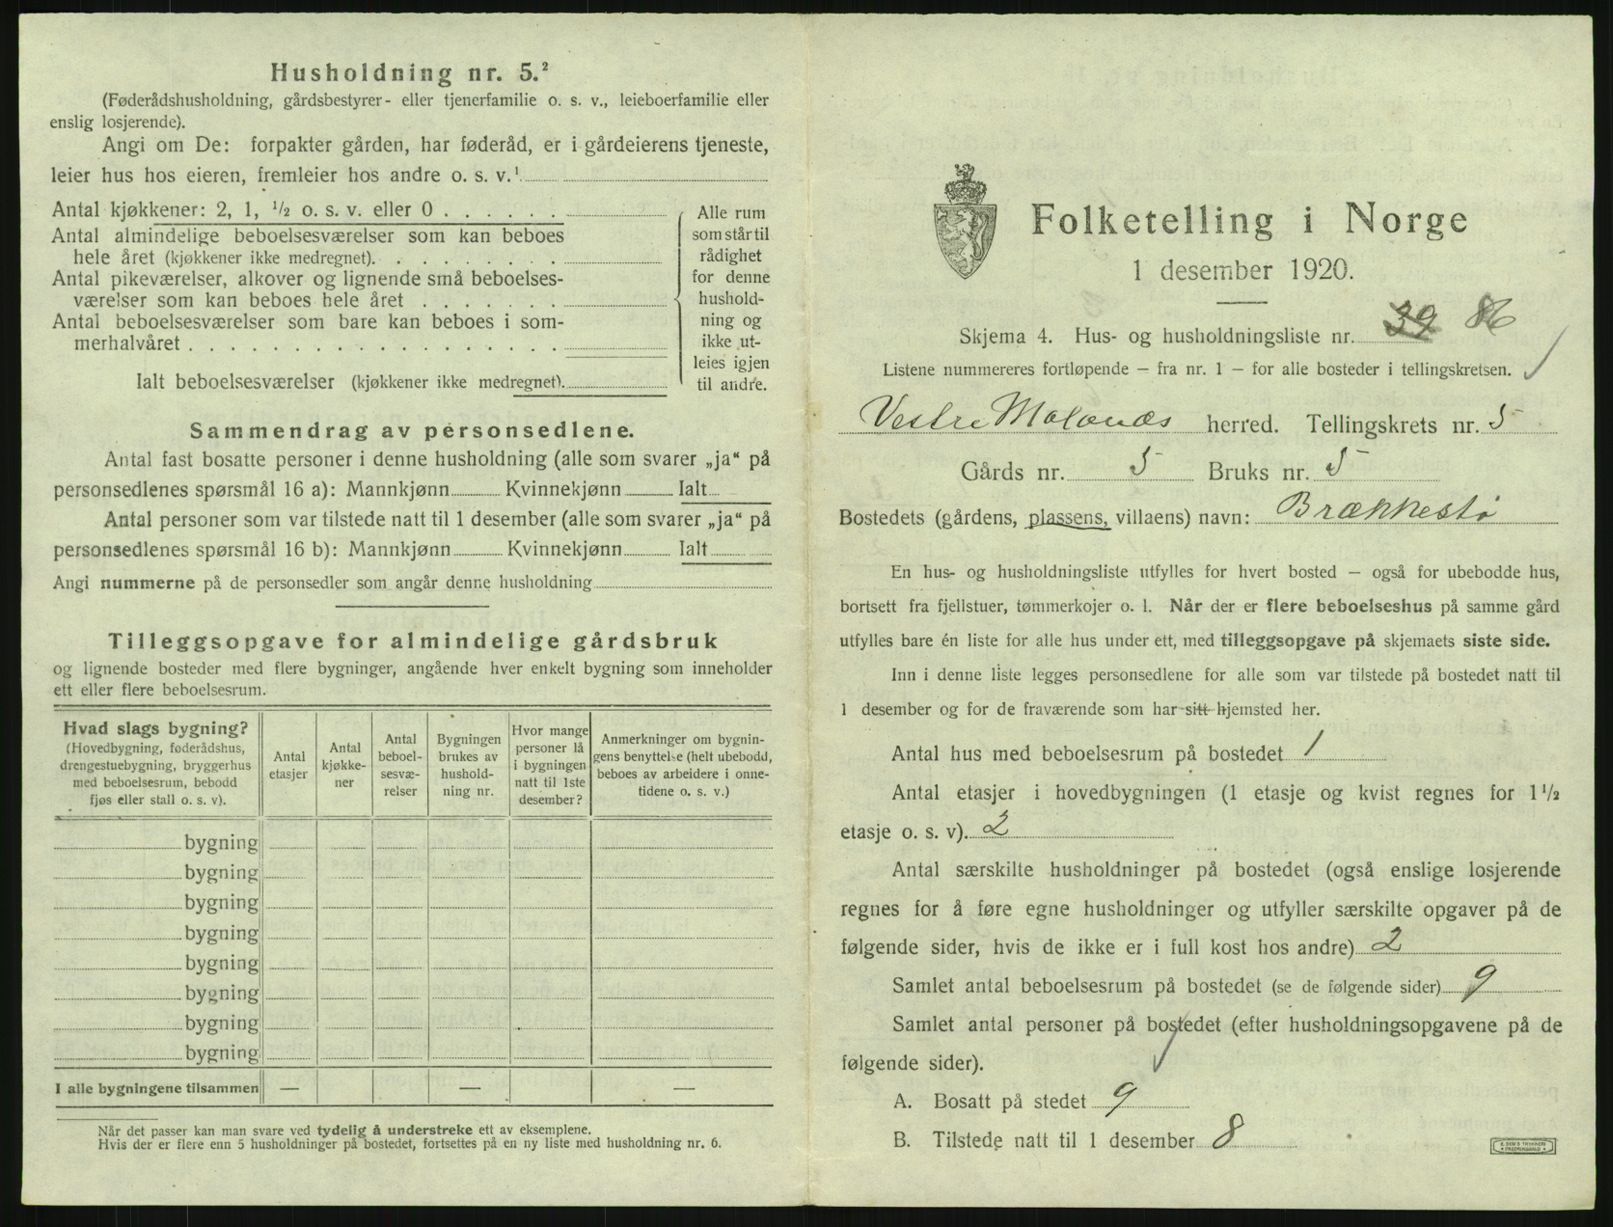 Husholdning nr. 5.²
(Føderådshusholdning, gårdsbestyrer- eller tjenerfamilie o. s. v., leieboerfamilie eller
enslig losjerende).
Angi om De: forpakter gården, har føderåd, er i gårdeierens tjeneste,
leier hus hos eieren, fremleier hos andre o. s. v.¹
Antal kjøkkener: 2, 1, ½ o. s. v. eller 0 . . . . . .
Antal almindelige beboelsesværelser som kan beboes
hele året (kjøkkener ikke medregnet). . . . . . . . .
Antal pikeværelser, alkover og lignende små beboelses-
værelser som kan beboes hele året . . . . . . .
Antal beboelsesværelser som bare kan beboes i som-
merhalvåret . . . . . . . . . . . . . . . . . .
Ialt beboelsesværelser (kjøkkener ikke medregnet).
Alle rum
som står til
rådighet
for denne
hushold-
ning og
ikke ut-
leies igjen
til andre.
Sammendrag av personsedlene.
Antal fast bosatte personer i denne husholdning (alle som svarer „ja“ på
personsedlenes spørsmål 16 a): Mannkjønn Kvinnekjønn Ialt
Antal personer som var tilstede natt til 1 desember (alle som svarer „ja“ på
personsedlenes spørsmål 16 b): Mannkjønn Kvinnekjønn Ialt
Angi nummerne på de personsedler som angår denne husholdning
Tilleggsopgave for almindelige gårdsbruk
og lignende bosteder med flere bygninger, angående hver enkelt bygning som inneholder
ett eller flere beboelsesrum.
Hvad slags bygning?
(Hovedbygning, føderådshus,
drengestuebygning, bryggerhus
med beboelsesrum, bebodd
fjøs eller stall o. s. v).
Antal
etasjer
Antal
kjøkke-
ner
Antal
beboel-
sesvæ-
relser
Bygningen
brukes av
hushold-
ning nr.
Hvor mange
personer lå
i bygningen
natt til 1ste
desember?
Anmerkninger om bygnin-
gens benyttelse (helt ubebodd,
beboes av arbeidere i onne-
tidene o. s. v.)
bygning
bygning
bygning
bygning
bygning
bygning
bygning
bygning
I alle bygningene tilsammen — — —
Når det passer kan man svare ved tydelig å understreke ett av eksemplene.
Hvis der er flere enn 5 husholdninger på bostedet, fortsettes på en ny liste med husholdning nr. 6.
Folketelling i Norge
1 desember 1920.
Skjema 4. Hus- og husholdningsliste nr. 39 86
Listene nummereres fortløpende — fra nr. 1 — for alle bosteder i tellingskretsen.
Vestre Moland​s herred. Tellingskrets nr. 5
Gårds nr. 5 Bruks nr. 5
Bostedets (gårdens, plassens, villaens) navn: Brækkestø
En hus- og husholdningsliste utfylles for hvert bosted — også for ubebodde hus,
bortsett fra fjellstuer, tømmerkojer o. l. Når der er flere beboelseshus på samme gård
utfylles bare én liste for alle hus under ett, med tilleggsopgave på skjemaets siste side.
Inn i denne liste legges personsedlene for alle som var tilstede på bostedet natt til
1 desember og for de fraværende som har sitt hjemsted her.
Antal hus med beboelsesrum på bostedet 1
Antal etasjer i hovedbygningen (1 etasje og kvist regnes for 1½
etasje o. s. v). 2
Antal særskilte husholdninger på bostedet (også enslige losjerende
regnes for å føre egne husholdninger og utfyller særskilte opgaver på de
følgende sider, hvis de ikke er i full kost hos andre) 2
Samlet antal beboelsesrum på bostedet (se de følgende sider) 9
Samlet antal personer på bostedet (efter husholdningsopgavene på de
følgende sider).
A. Bosatt på stedet 9
B. Tilstede natt til 1 desember 8